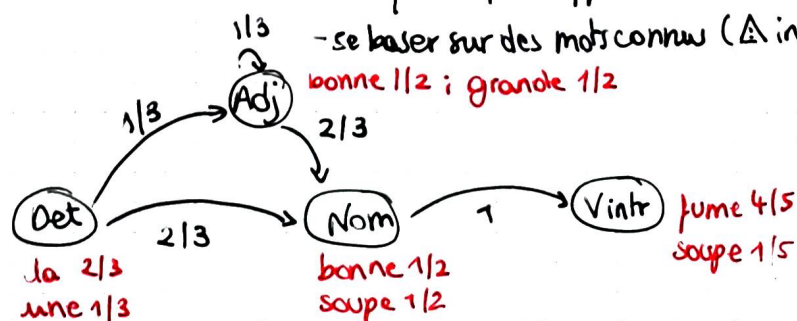 1/3
- se baser sur des mots connus (⚠ in
Adj
bonne 1/2 ; grande 1/2
1/3
2/3
Det
2/3
Nom
1
Vintr
fume 4/5
soupe 1/5
la 2/3
une 1/3
bonne 1/2
soupe 1/2